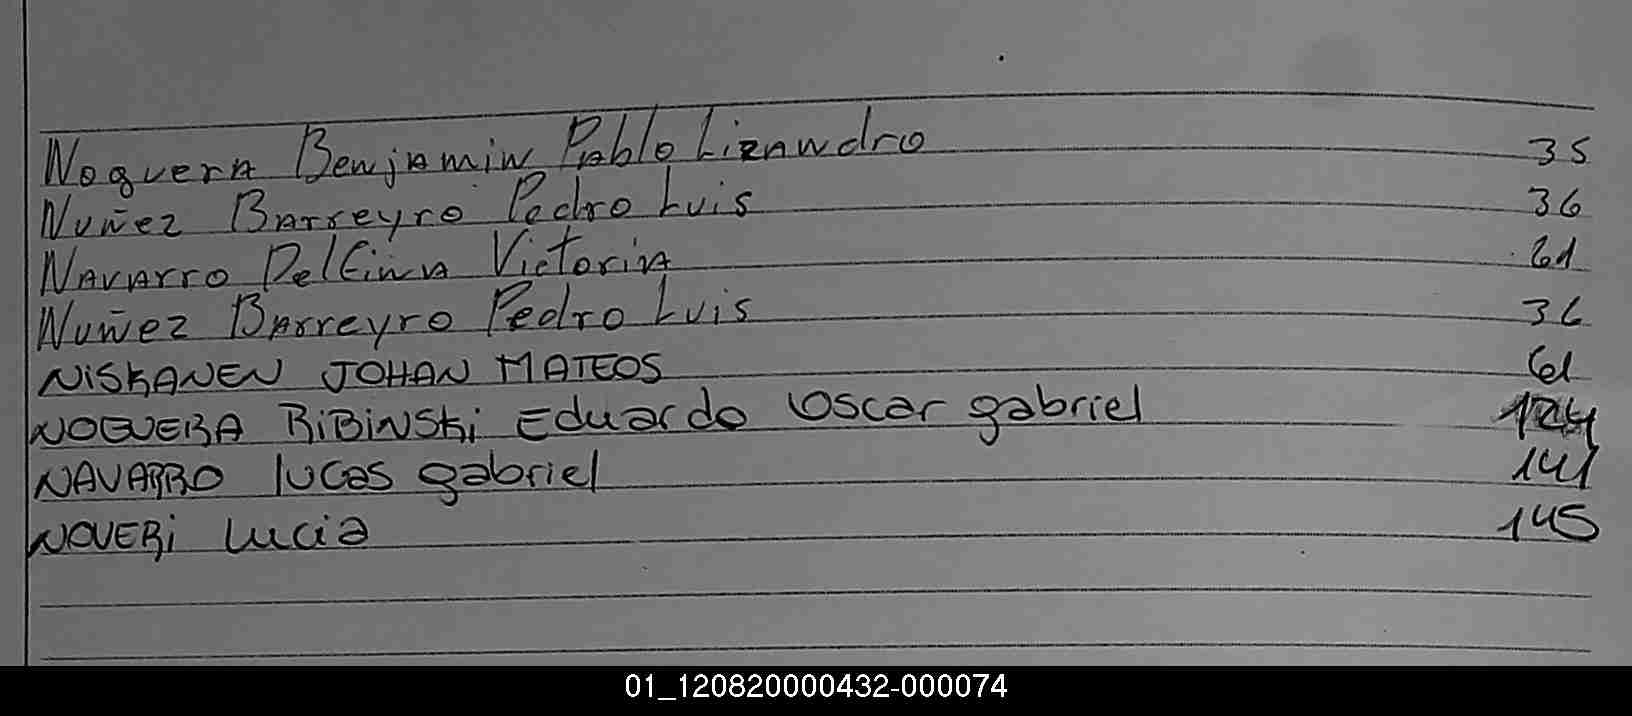 Noguera Benjamin Pablo Lizandro 35
Nuñez Barreyro Pedro Luis 36
Navarro Delfina Victoria 61
Nuñez Barreyro Pedro Luis 36
NiSKANEN JOHAN MATEOS 61
NOGUERA RiBiNSKi Eduardo Oscar gabriel 124
NAVARRO lucas gabriel 141
NOVERi Lucia 145
01_120820000432-000074